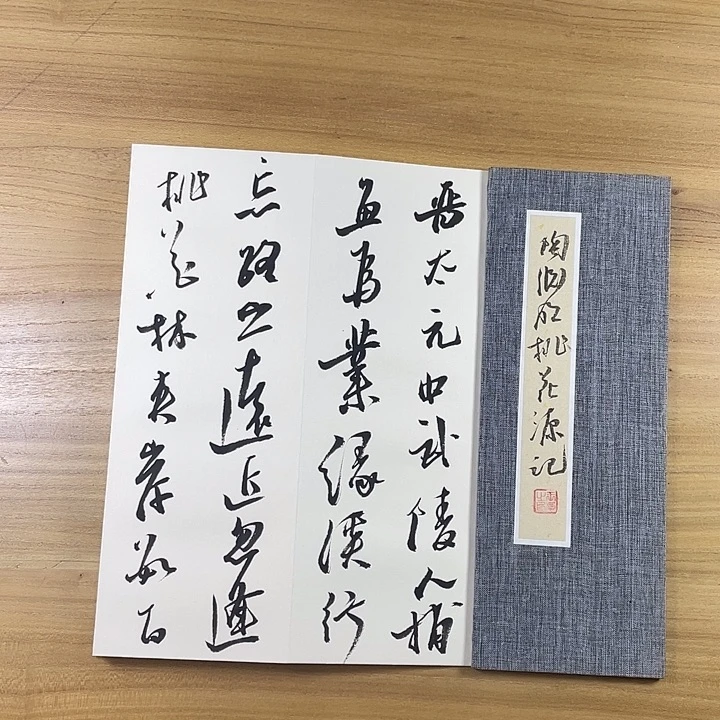 陶渊明桃花源记
晋太元中武陵人捕
鱼为业缘溪行
忘路之远近忽逢
桃花林夹岸数百